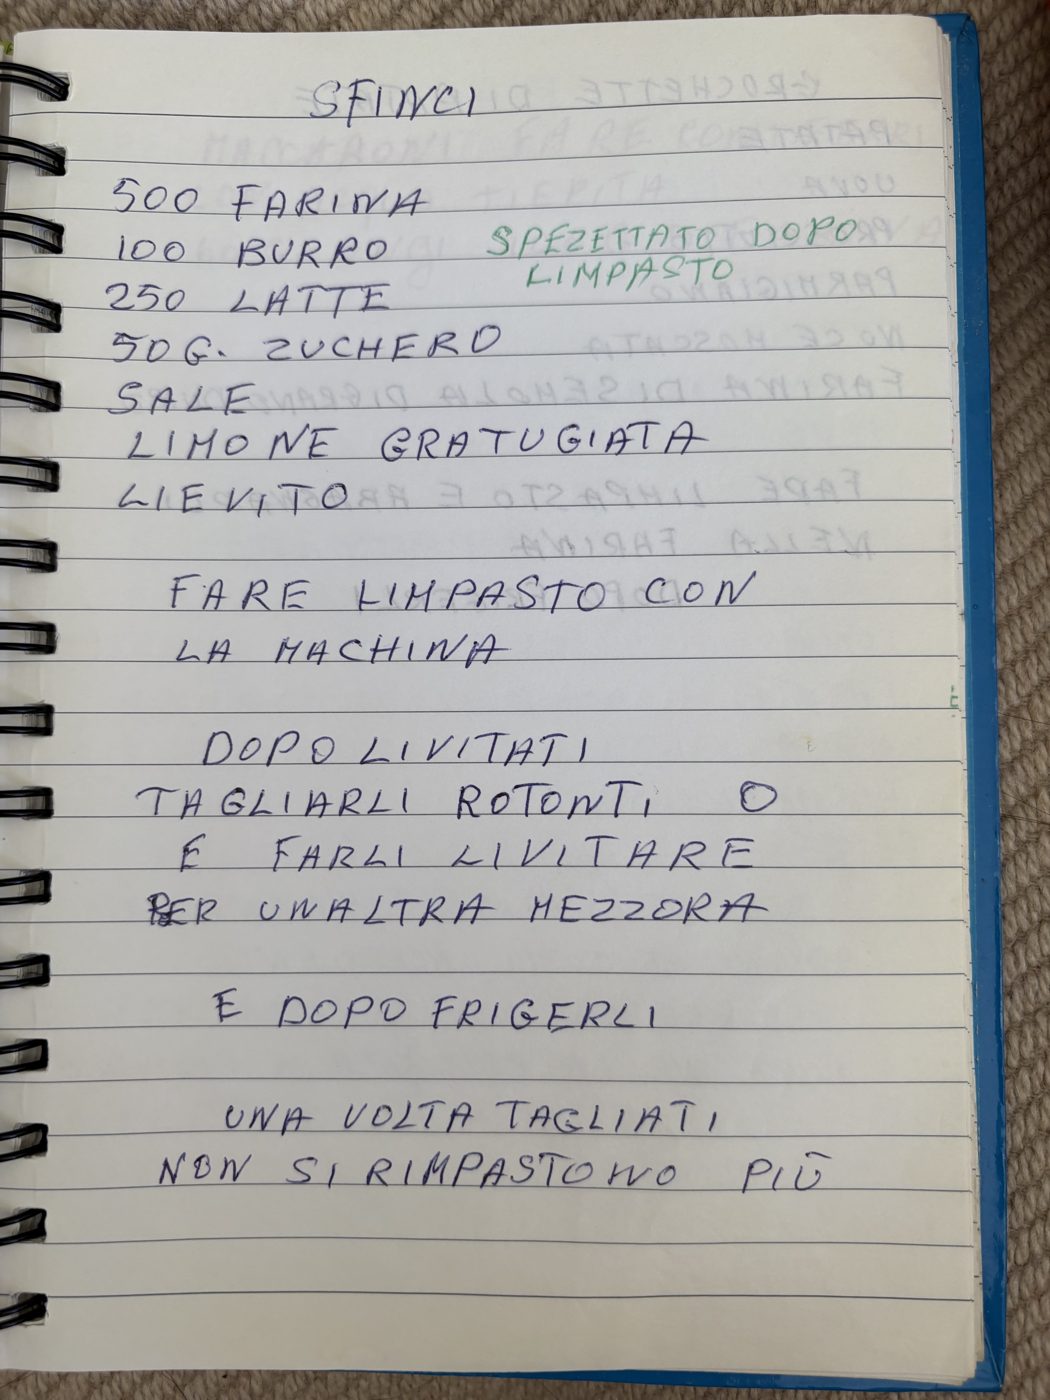 SFINCI
500 FARINA
100 BURRO SPEZETTATO DOPO
LIMPASTO
250 LATTE
50 G. ZUCHERO
SALE
LIMONE GRATUGIATA
LIEVITO
FARE LIMPASTO CON
LA MACHINA
DOPO LIVITATI
TAGLIARLI ROTONTI O
E FARLI LIVITARE
PER UNALTRA MEZZORA
E DOPO FRIGERLI
UNA VOLTA TAGLIATI
NON SI RIMPASTONO PIÙ